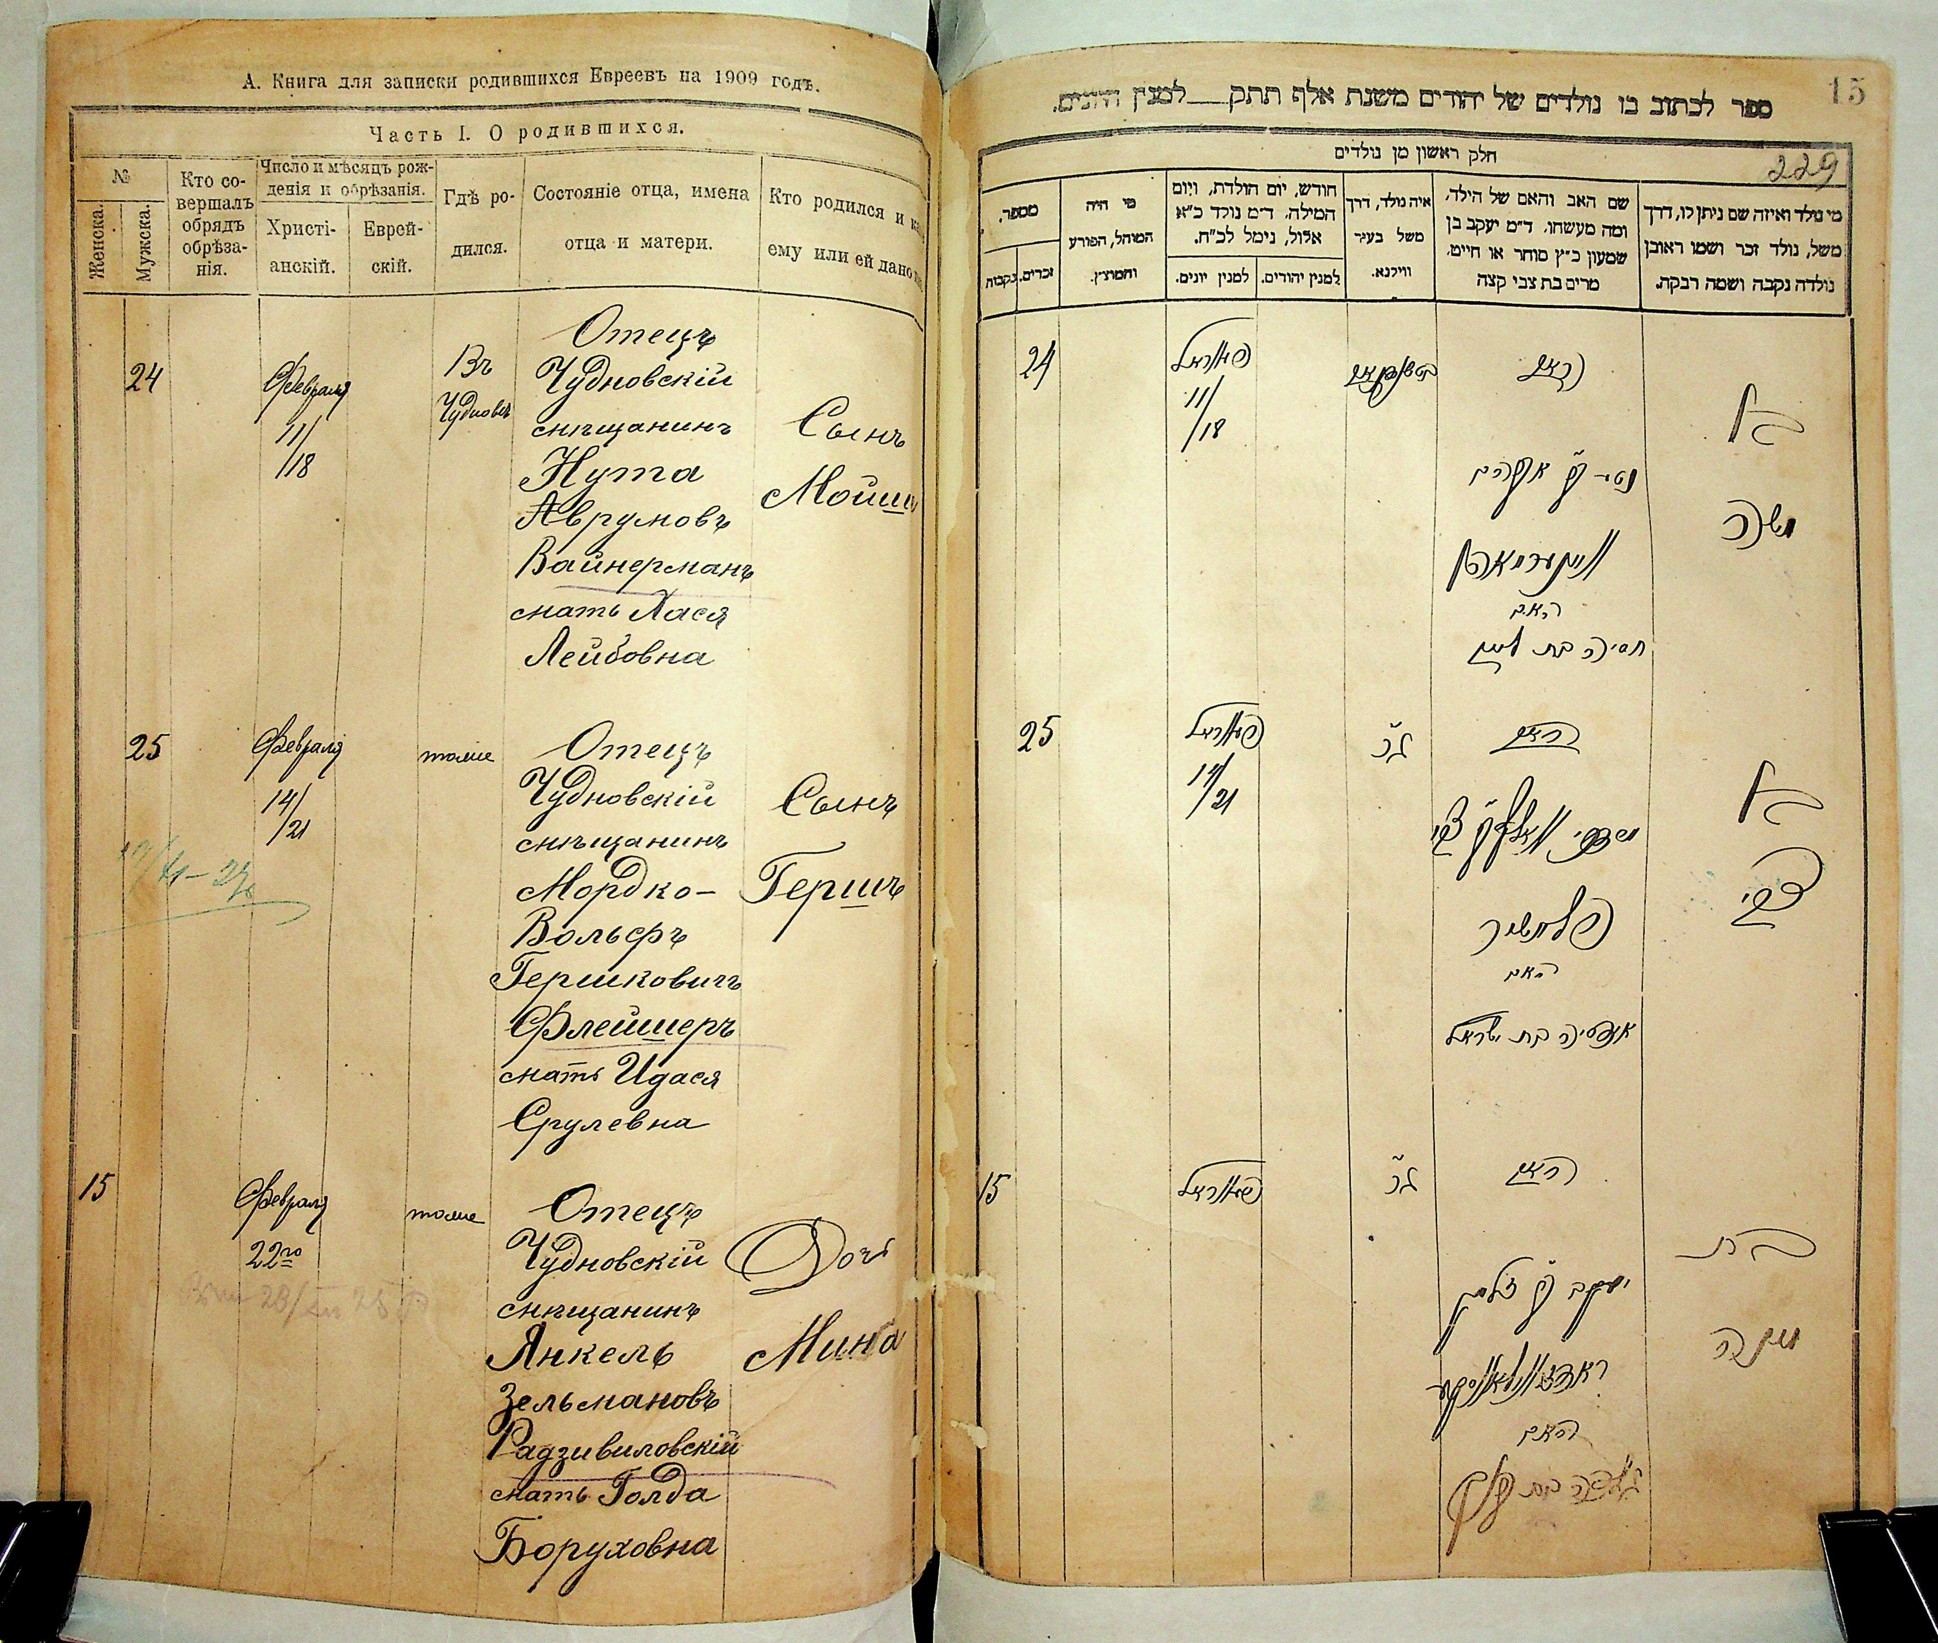 А. Книга для записки родившихся Евреевъ на 1909 годъ.
Часть I. О родившихся.
№
Женска.
Мужска.
Кто со-
вершалъ
обрядъ
обрѣза-
нія.
Число и мѣсяцъ рож-
денія и обрѣзанія.
Христі-
анскій.
Еврей-
скій.
Гдѣ ро-
дился.
Состояніе отца, имена
отца и матери.
Кто родился и
ему или ей дано
24
Февраля
11/
/18
Въ
Чудновѣ
Отецъ
Чудновскій
мѣщанинъ
Нута
Аврумовъ
Вайнерманъ
мать Хася
Лейбовна
Сынъ
Мойше
25
Февраля
14/
/21
тоже
Отецъ
Чудновскій
мѣщанинъ
Мордко-
Вольфъ
Гершковичъ
Флейшеръ
мать Идася
Срулевна
Сынъ
Гершъ
15
Февраля
22го
тоже
Отецъ
Чудновскій
мѣщанинъ
Янкель
Зельмановъ
Радзивиловскій
мать Голда
Боруховна
Дочь
Минда
15
ספר לכתוב בו נולדים של יהודים משנת אלף תתק למנין היונים.
229
חלק ראשון מן נולדים
מי נולד ואיזה שם ניתן לו, דרך
משל, נולד זכר ושמו ראובן
נולדה נקבה ושמה רבקה.
שם האב והאם של הילד,
ומה מעשהו. ד״מ יעקב בן
שמעון כ״ץ סוחר או חייט.
מרים בת צבי קצה
איה נולד, דרך
משל בעיר
ווילנא.
חודש, יום הולדת, ויום
המילה. ד״מ נולד כ״א
אלול, נימל לכ״ח.
למנין יהודים.
למנין יונים.
מי היה
המוהל, הפורע
והמוצץ.
מספר.
זכרים.
נקבות
24
פעווראל
11/
/18
האב
נטע בן אברהם
וויינערמאן
האם
חסיה בת לייב
בן
משה
25
פעווראל
14/
/21
האב
פליישער
האם
אידסיה בת ישראל
בן
צבי
15
פעווראל
האב
יעקב בן זלמן
האם
גאלדה בת ברוך
בת
מינדה